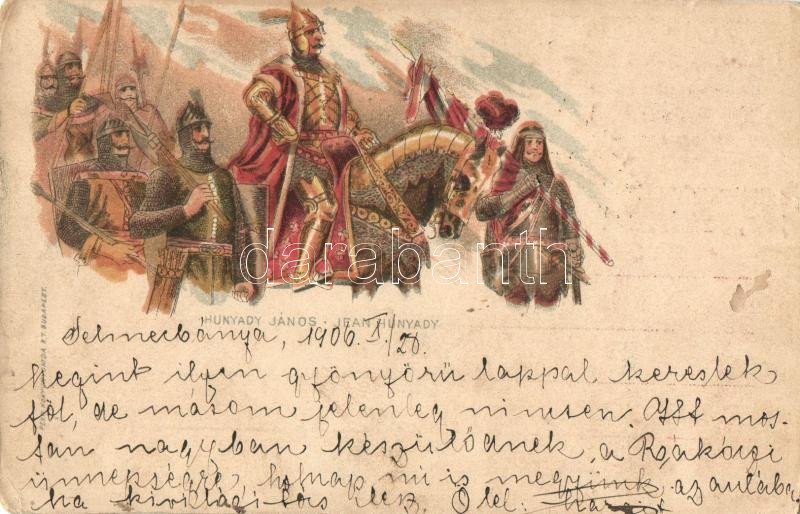 darabanth
HUNYADY JÁNOS · JEAN HUNYADY
R.T. BUDAPEST.
Selmecbánya, 1906. I/28.
Megint ilyen gyönyörű lappal kereslek
föl, de másom jelenleg nincsen. Itt mos-
tan nagyban készülődnek a Rákóczi
ünnepségre, holnap mi is megyünk az aulába
ha kivilágítás lesz. Ölel: